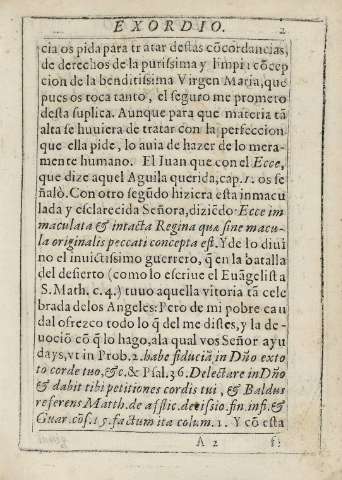 EXORDIO. 2
cia os pida para tratar destas cõcordancias,
de derechos de la purissima y limpia cõcep
cion de la benditissima Virgen Maria, que
pues os toca tanto, el seguro me prometo
desta suplica. Aunque para que materia tã
alta se huviera de tratar con la perfeccion
que ella pide, lo auia de hazer de lo mera-
mente humano. El Iuan que con el Ecce,
que dize aquel Aguila querida, cap. 1. os se
ñalò. Con otro segũdo hiziera esta inmacu
lada y esclarecida Señora, diziẽdo: Ecce im
maculata & intacta Regina quæ sine macu-
la originalis peccati concepta est. Y de lo diui
no el inuictissimo guerrero, q̃ en la batalla
del desierto (como lo escriue el Euãgelista
S. Math. c. 4.) tuuo aquella vitoria tã cele
brada de los Angeles: Pero de mi pobre cau
dal ofrezco todo lo q̃ del me distes, y la de-
uociõ cõ q̃ lo hago, a la qual vos Señor ayu
days, vt in Prob. 2. habe fiduciã in Dño ex to
to corde tuo, &c. & Psal. 36. Delectare in Dño
& dabit tibi petitiones cordis tui, & Baldus
referens Matth. de afflic. decisio. fin. infi. &
Guar. cõs. 15. factum ita colum. 1. Y cõ esta
A 2 f: